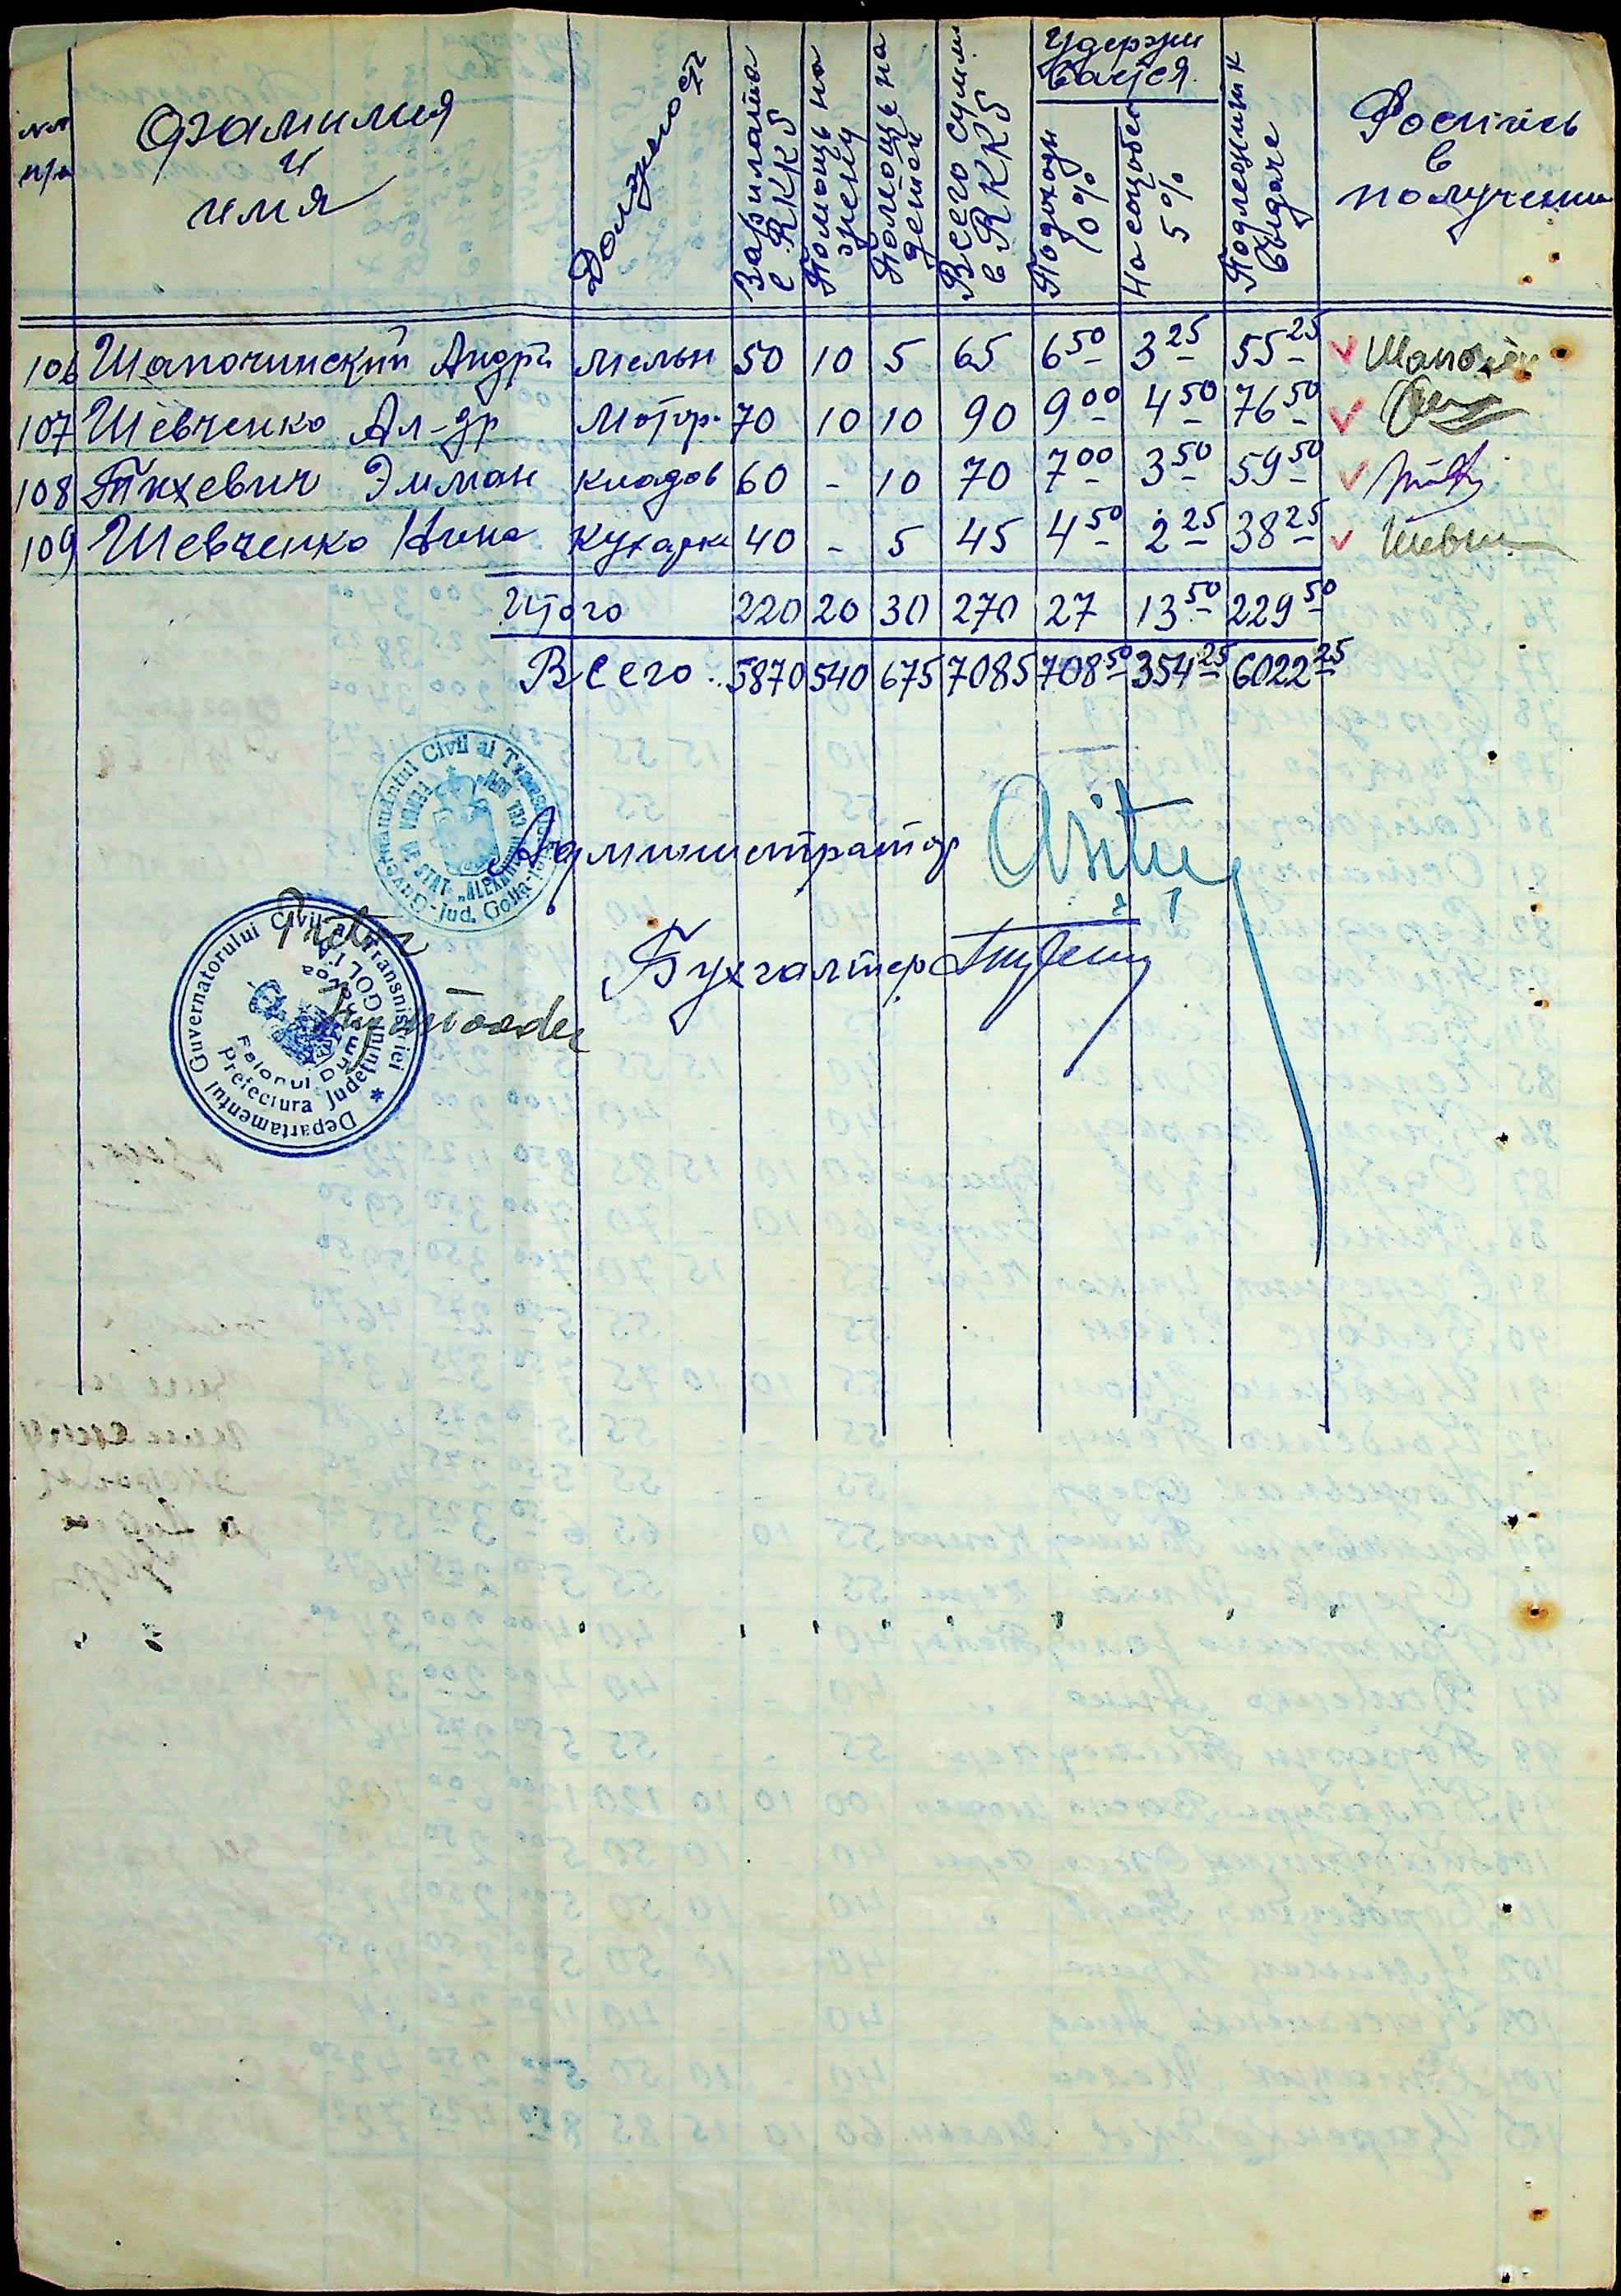 №№ п/п
Фамилия и имя
Должность
Зарплата в RKKS
Помощь на жену
Помощь на детей
Всего сумм. в RKKS
Удержи вается.
Подоходн 10%
На соцобес 5%
Подлежит к выдаче
Роспись в получении
106 Шапочинский Андрій мельн 50 10 5 65 6 50 3 25 55 25
107 Шевченко Ал-др Мотор. 70 10 10 90 9 00 4 50 76 50
108 Тихевич Эмман кладов 60 - 10 70 7 00 3 50 59 50
109 Шевченко Нина Кухарка 40 - 5 45 4 50 2 25 38 25 Шевч
Итого 220 20 30 270 27 13 50 229 50
Всего.. 5870 540 675 7085 708 50 354 25 6022 25
Guvernământul Civil al Transnistriei Jud. Golta
FERMA DE STAT "ALEXANDRU CEL BUN"
Администратор
Pretor
Бухгалтер
Departamentul Guvernatorului Civil al Transnistriei
Prefectura Județului GOLTA